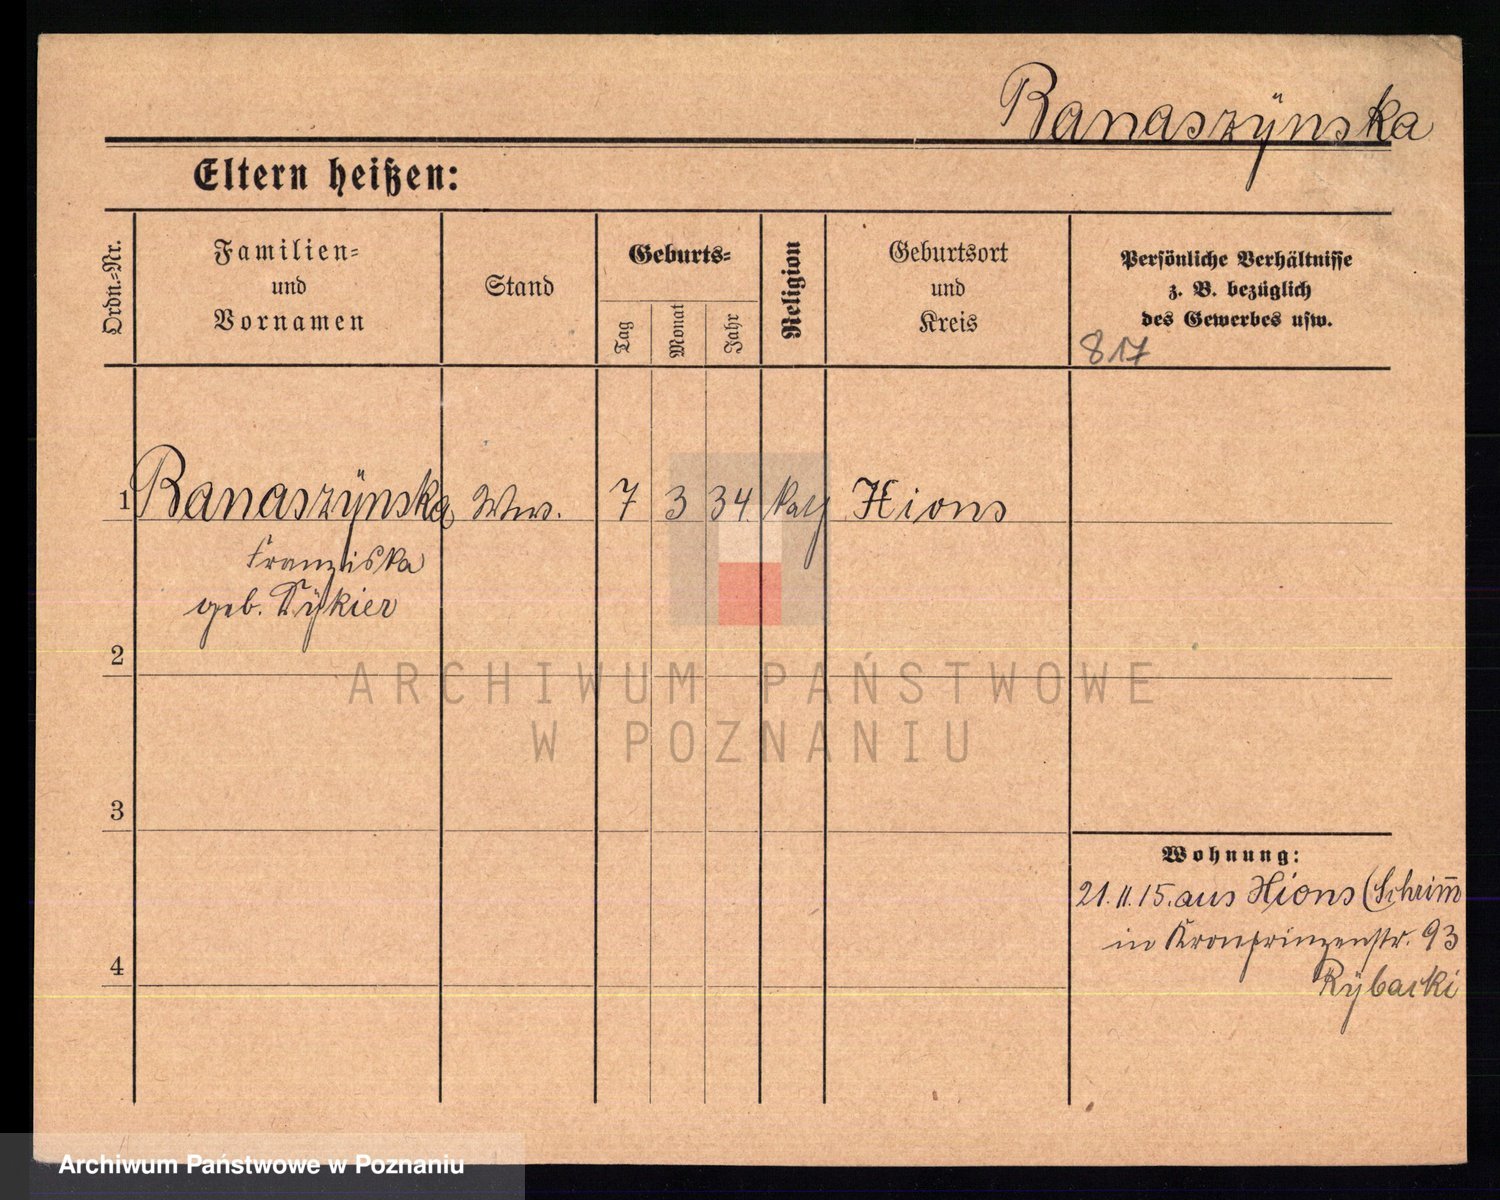 Banaszÿnska
Eltern heißen:
Ordn.-Nr.
Familien-
und
Vornamen
Stand
Geburts-
Tag
Monat
Jahr
Religion
Geburtsort
und
Kreis
Persönliche Verhältnisse
z. B. bezüglich
des Gewerbes usw.
817
1 Banaszÿnska Ww. 7 3 34. kath Xions
Franziska
geb.
2
3
4
Wohnung:
21.11.15. aus Xions (Schrim̅
in Kronprinzenstr. 93
Rÿbacki
ARCHIWUM PAŃSTWOWE
W POZNANIU
Archiwum Państwowe w Poznaniu